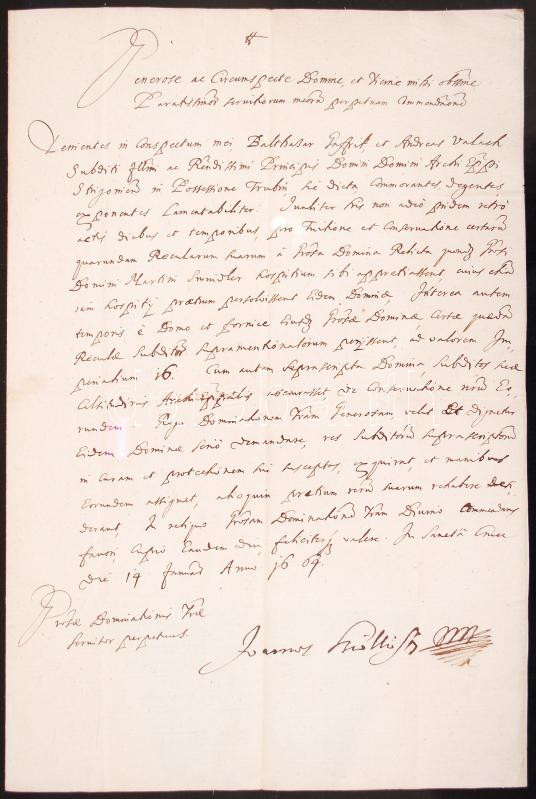 Generose ac Circumspecte Domine, et Vicine mihi obserme
Paratissimor servitiorum meorum perpetuam Commendationem
Venientes in Conspectum mei Balthasar et Andreas Valach
Subditi Illmi ac Rendissimi Principis Domini Domini Archi Eppi
Strigonien in Possessione Trubin, sic dicta Commorantes, degentes
exponentes Lamentabiliter. Qualiter his non adeo pridem retro
actis diebus et temporibus, pro Tuitione et Conservatione certarum
quarundam Recularum suarum à Domina Relicta quond
Domini Martini hospitium sibi appretiassent cuius
iam hospitij praetium persolvissent Eidem Dominae Interea autem
temporis è Domo et fornice Eiusd Dominae Certae quaedam
Reculae Subditor supramentionatorum perijssent, ad valorem Im
perialium 16. Cum autem suprascripta Domina, Subditos suae
Celsitudinis Archi Eppalis assecurasset, de Conservatione rerum Eo,
rundem. Ergo Dominationem Vram Generosam velit Et dignetur
Eidem Dominae serio demandare, res Subditorum suprascriptorum
in curam et protectionem sui susceptas, exquirat, et manibus
Eorundem assignet, alioquin praetium rerum suarum rehabere desi,
derant, In reliquo Dominationem Vram Divino Commendans
favori, cupio Eandem diu feliciter valere. In Sancta Cruce
die 14 January Anno 1664.
Dominationis Vrae
servitor perpetuus
Joannes